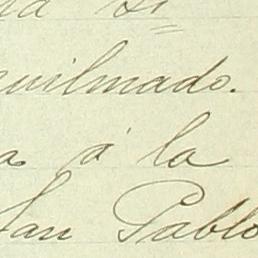 quilmado.
a á la
San Pablo